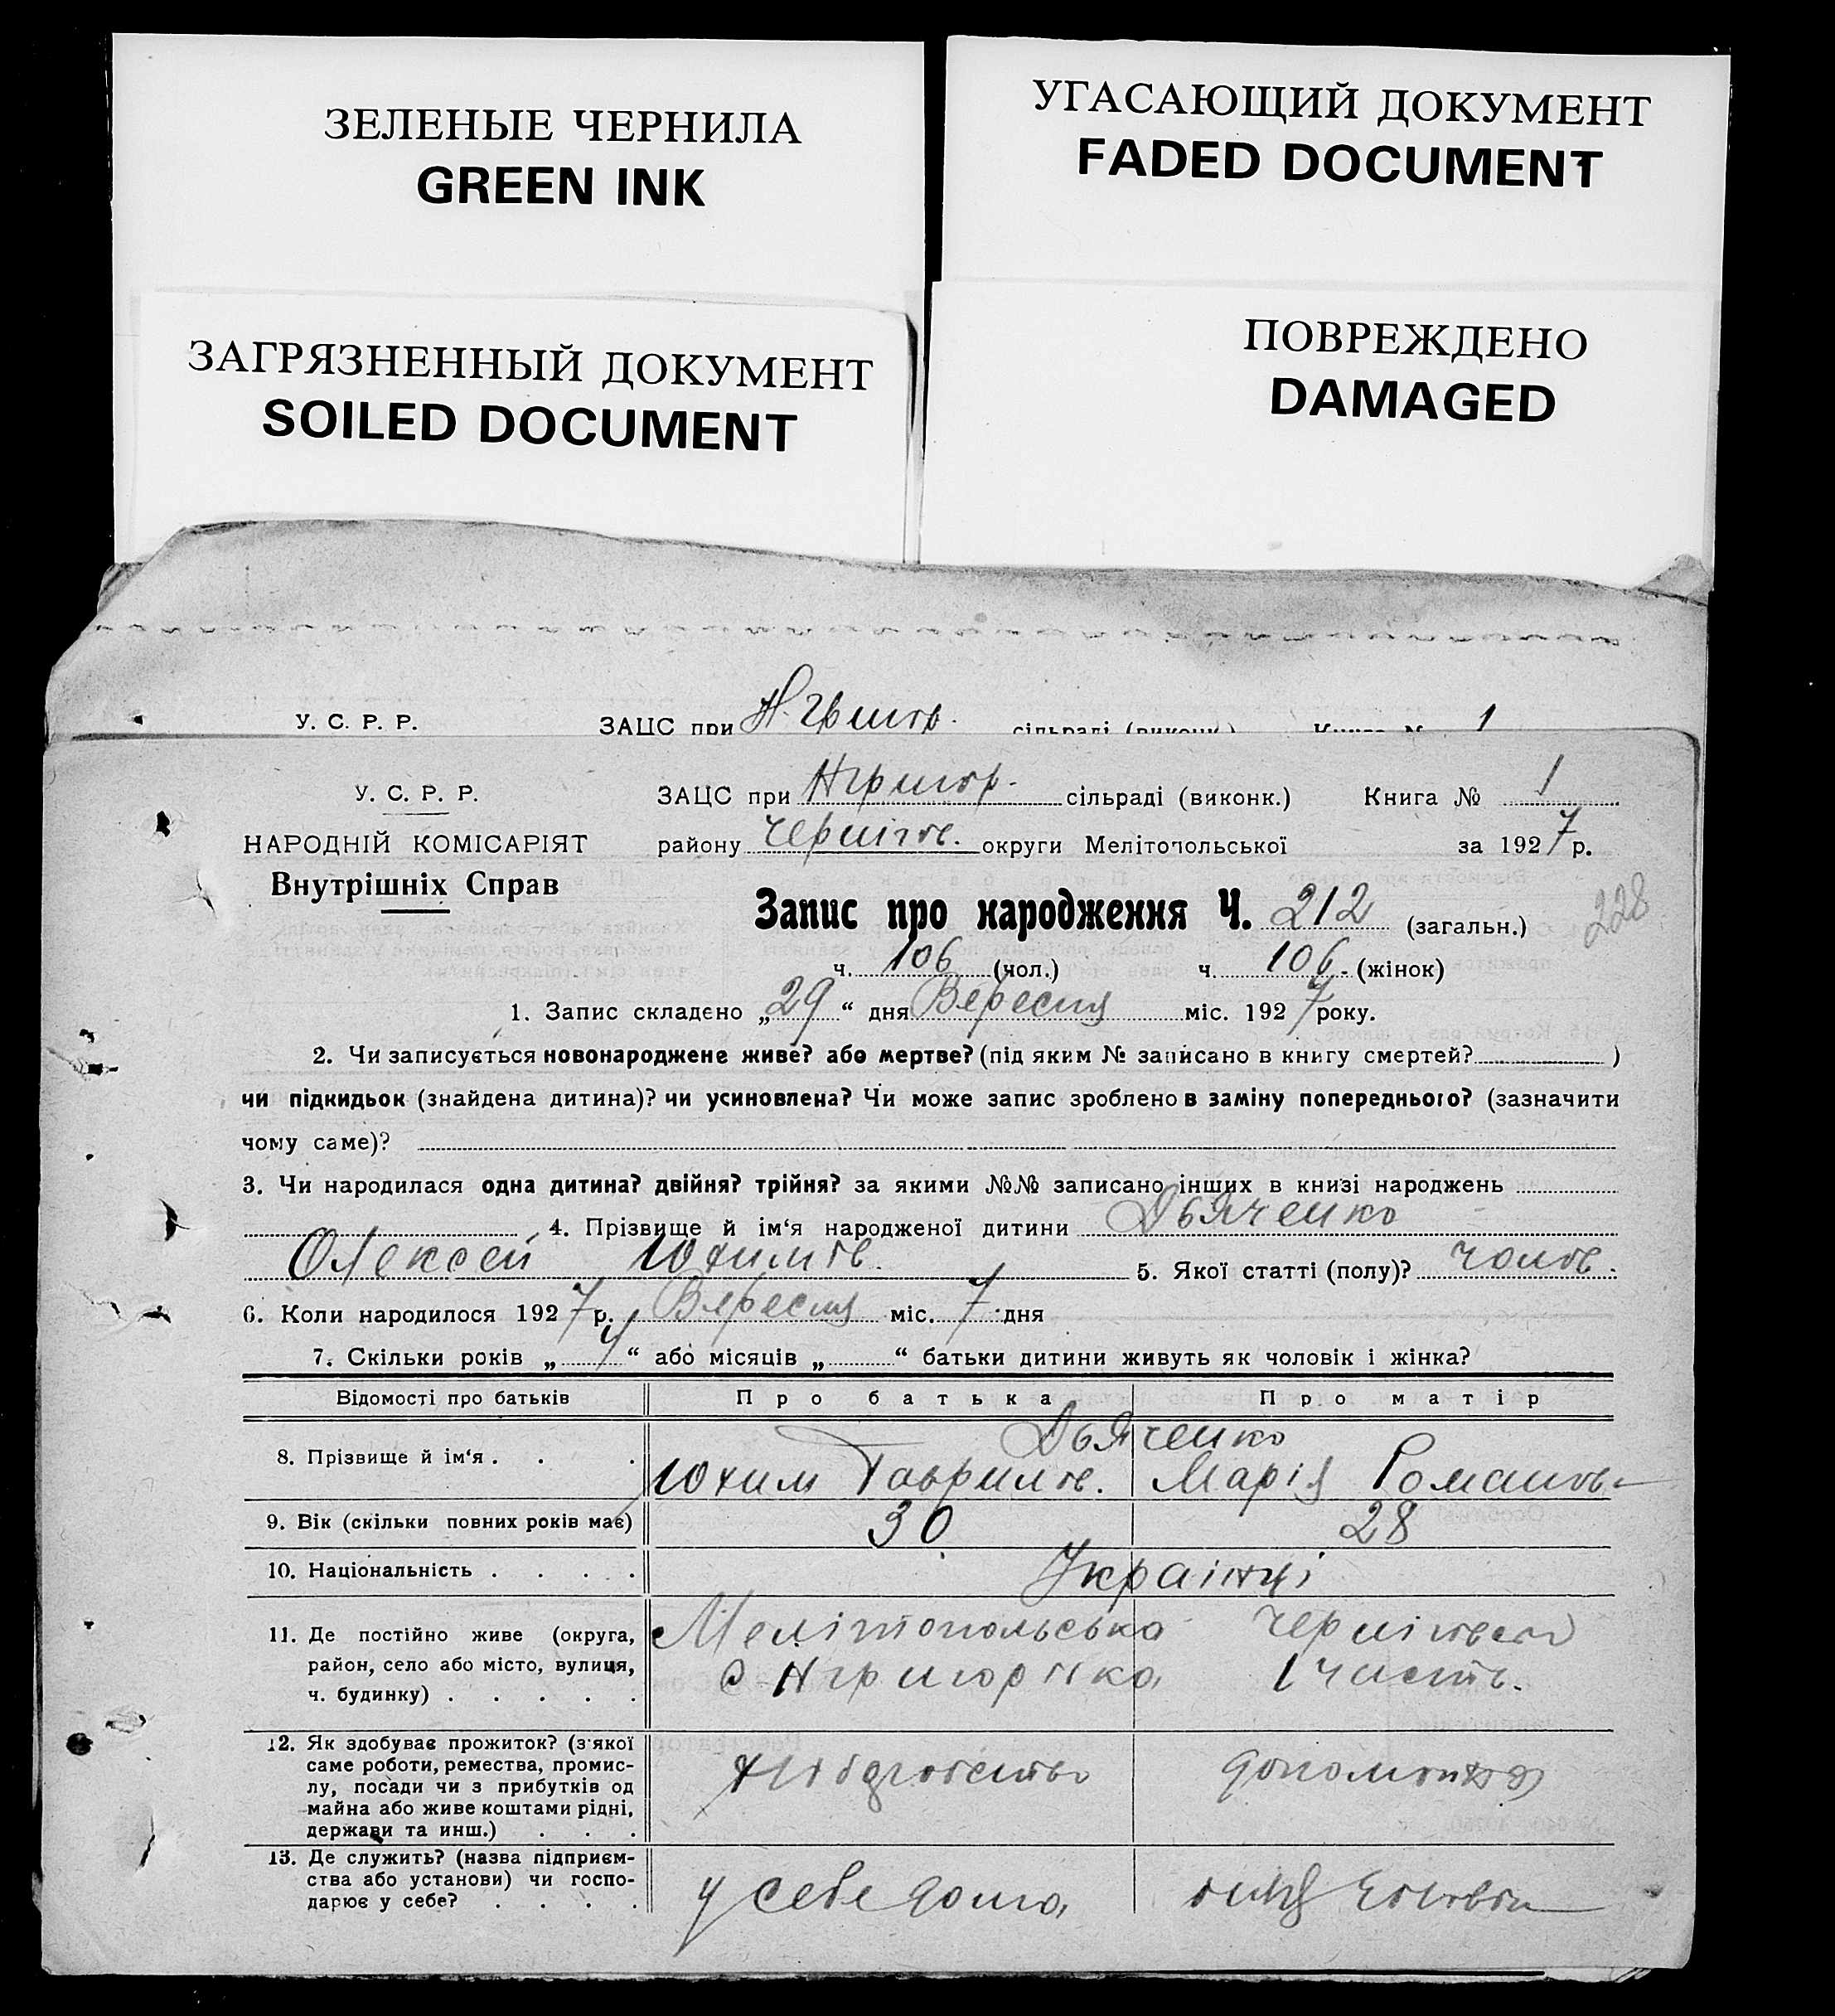 ЗЕЛЕНЫЕ ЧЕРНИЛА
GREEN INK
УГАСАЮЩИЙ ДОКУМЕНТ
FADED DOCUMENT
ЗАГРЯЗНЕННЫЙ ДОКУМЕНТ
SOILED DOCUMENT
ПОВРЕЖДЕНО
DAMAGED
У. С. Р. Р. ЗАЦС при Н-Григор. сільраді (виконк.) Книга № 1
У. С. Р. Р. ЗАЦС при Нгригор. сільраді (виконк.) Книга № 1
НАРОДНІЙ КОМІСАРІЯТ району Чернігов. округи Мелітопольської за 1927 р.
Внутрішніх Справ
Запис про народження Ч. 212 (загальн.) 228
ч. 106 (чол.) ч. 106 (жінок)
1. Запис складено „29“ дня Вересня міс. 1927 року.
2. Чи записується новонароджене живе? або мертве? (під яким № записано в книгу смертей? )
чи підкидьок (знайдена дитина)? чи усиновлена? Чи може запис зроблено в заміну попереднього? (зазначити
чому саме)?
3. Чи народилася одна дитина? двійня? трійня? за якими №№ записано інших в книзі народжень
4. Прізвище й ім‘я народженої дитини Дьяченко
Олексей Юхимов. 5. Якої статті (полу)? чолов.
6. Коли народилося 1927 р. Вересня міс. 7 дня
7. Скільки років „ 4 “ або місяців „ “ батьки дитини живуть як чоловік і жінка?
Відомості про батьків Про батька Про матір
8. Прізвище й ім‘я . . . Дьяченко
Юхим Гаврилов. Марія Романов
9. Вік (скільки повних років має) 30 28
10. Національність . . . . Украінці
11. Де постійно живе (округа, Мелітопольська
район, село або місто, вулиця, с Нгригорівка 1 часть.
ч. будинку) . . . . .
12. Як здобуває прожиток? (з‘якої
саме роботи, ремества, промис-
лу, посади чи з прибутків од
майна або живе коштами рідні,
держави та инш.) . . .
13. Де служить? (назва підприєм-
ства або установи) чи госпо- у себе дома
дарює у себе? . . . .